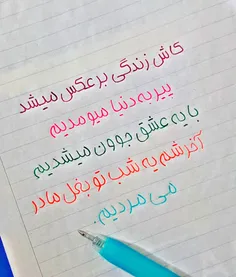 کاش زندگی برعکس میشد
پیر به دنیا میومدیم
با یه عشق جوون میشدیم
آخرشم یه شب تو بغل مادر
می مردیم.